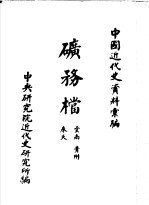 中國近代史資料彙編
礦務檔
雲南 貴州
卷六
中央研究院近代史研究所編